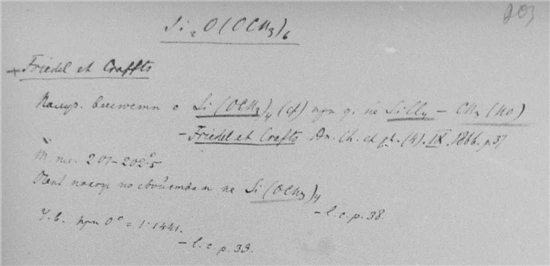 203
Si₂O(OCH₃)₆
+ Friedel et Craffts
Получ. вместе с Si(OCH₃)₄ (cf) при д. на SiCl₄ – CH₃(HO)
– Friedel et Crafts An. Ch. et ph. (4). IX. 1866. p 37
Т кип. 201-202°5
похож по свойствам на Si(OCH₃)₄
– l. c. p. 38.
У. в. при 0° = 1·1441.
– l. c. p. 39.